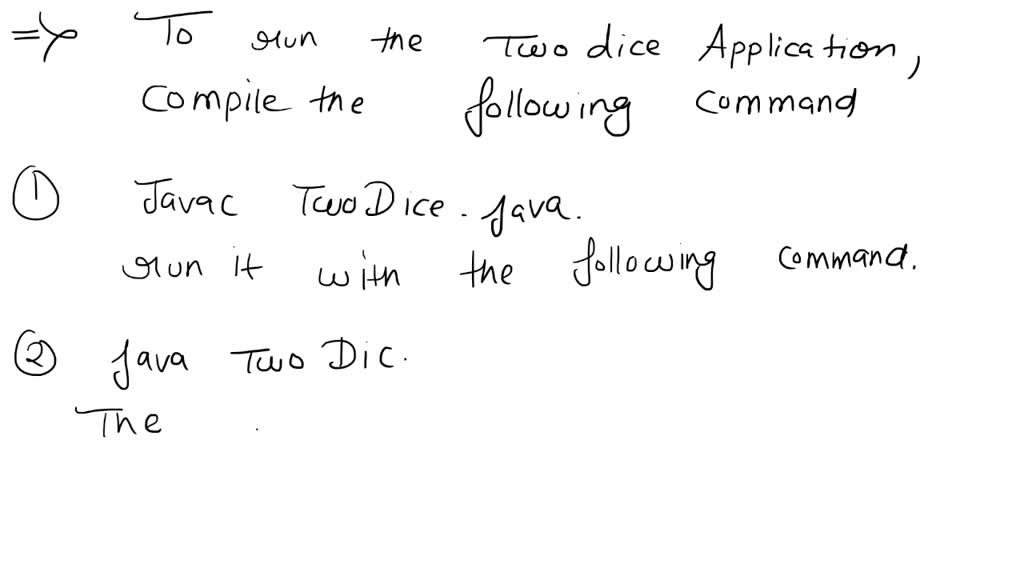 => To run the Two dice Application,
Compile the following Command
① Javac TwoDice.java.
run it with the following Command.
② java Two Dic.
The